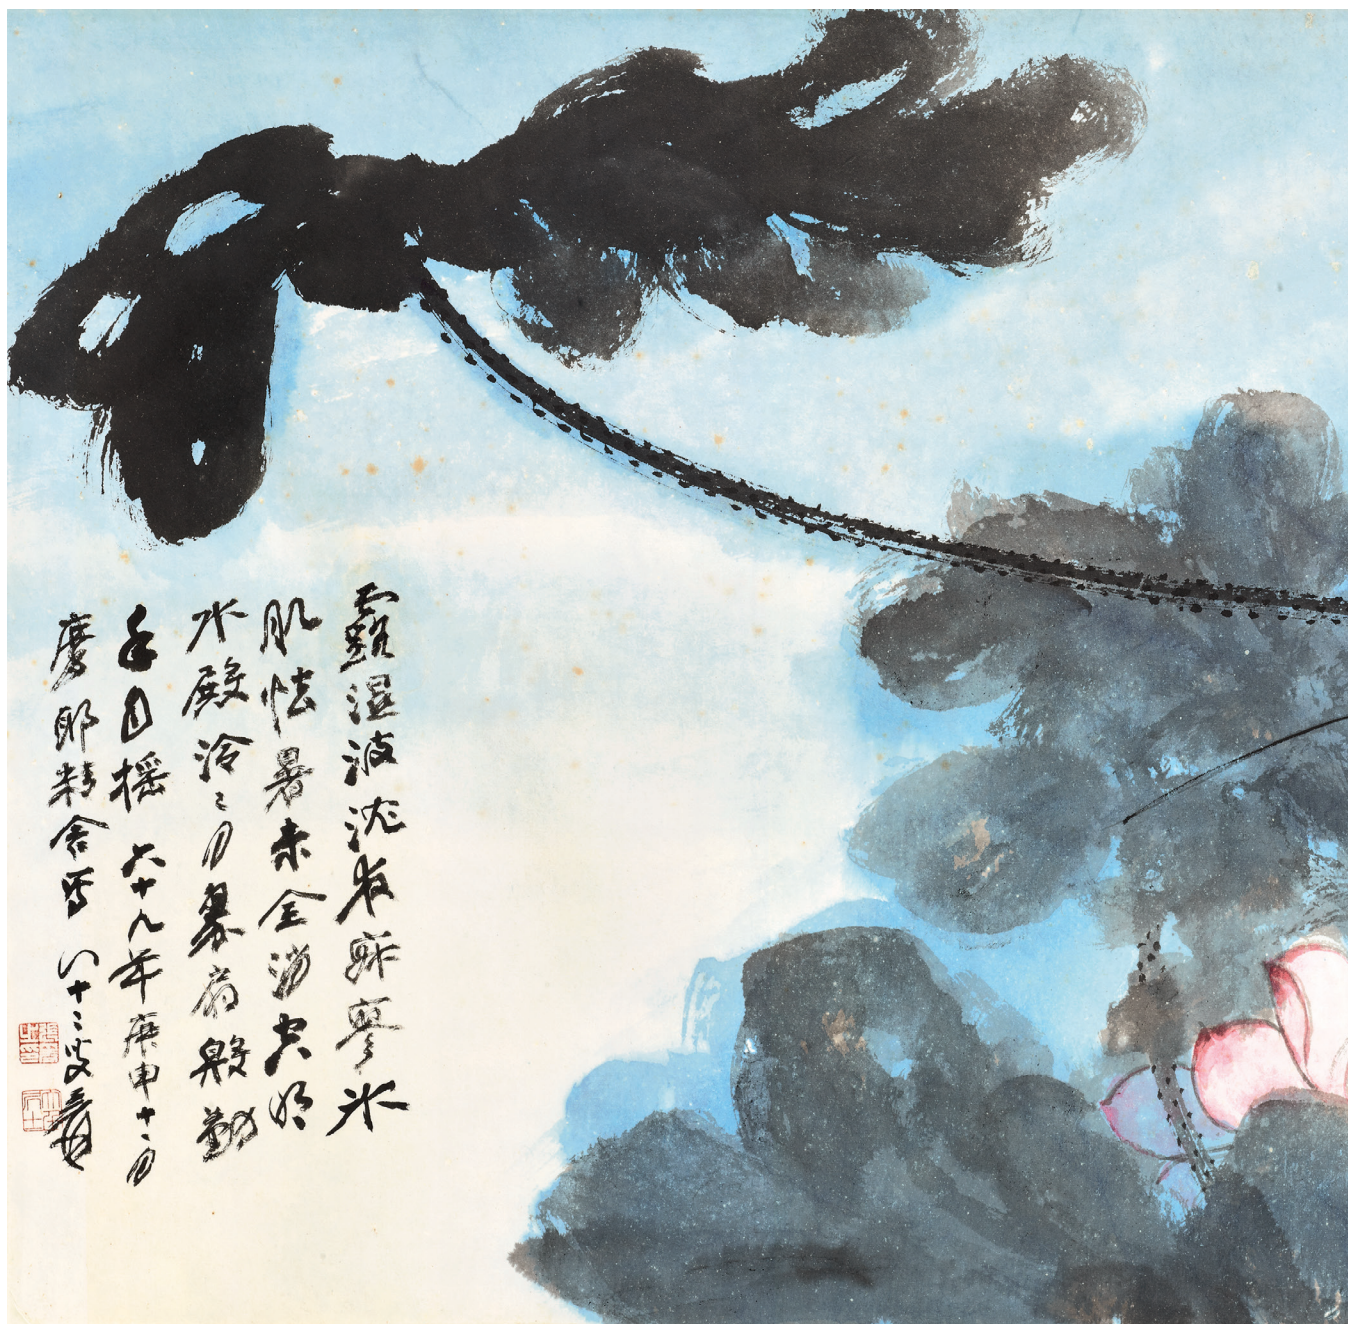 露溼波沈夜寂寥冰
肌怯暑未全消空明
水殿泠〻月翠扇殷勤
手自搖 六十九年庚申十二月
摩耶精舍寫 八十二叟爰
張爰之印
大千居士